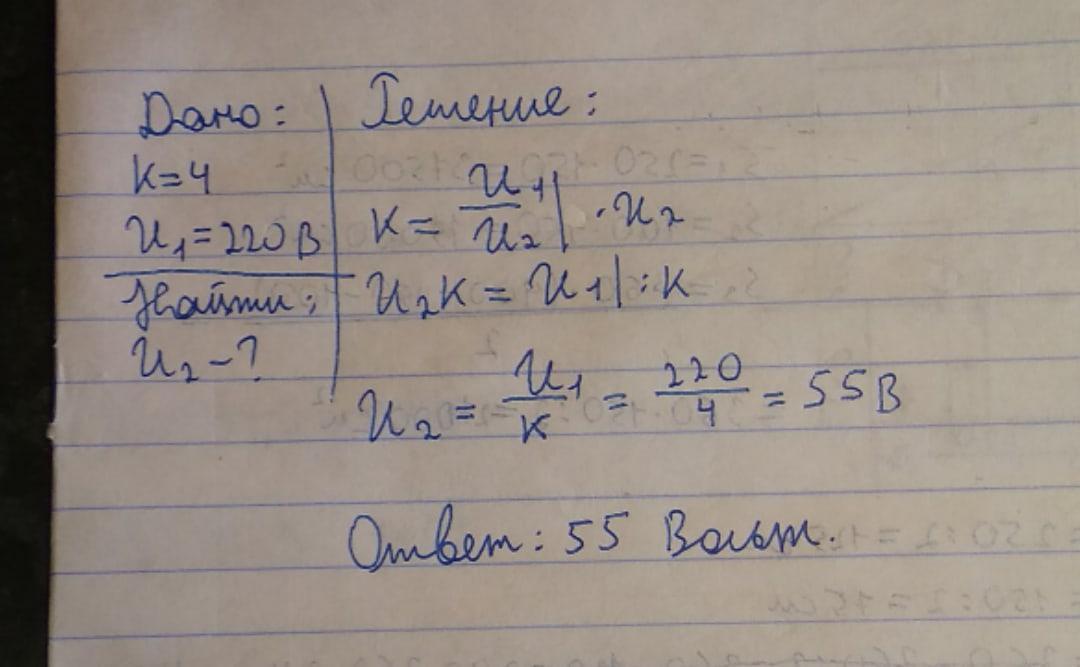 Дано:
К=4
U₁=220 В
Найти:
U₂ - ?
Решение:
К = U₁/U₂ | · U₂
U₂К = U₁ | : К
U₂ = U₁/К = 220/4 = 55 В
Ответ: 55 Вольт.